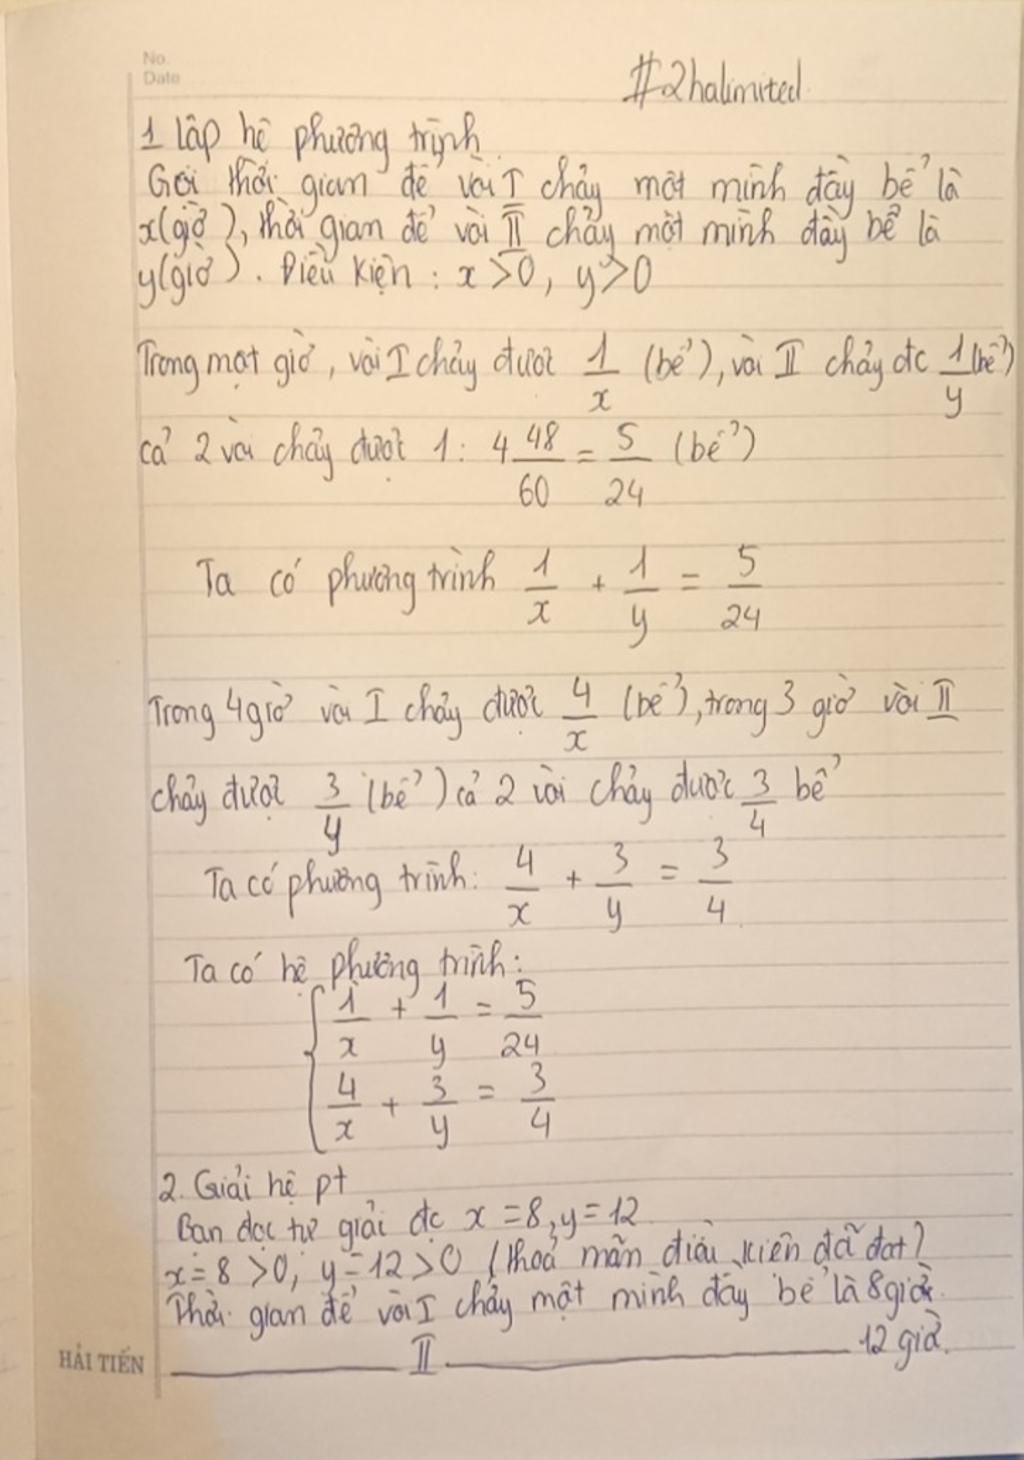 No.
Date
#2halimited
1 Lập hệ phương trình
Gọi thời gian để vòi I chảy một mình đầy bể là
x(giờ), thời gian để vòi II chảy một mình đầy bể là
y(giờ). Điều kiện: x>0, y>0
Trong một giờ, vòi I chảy được 1/x (bể), vòi II chảy đc 1/y (bể)
cả 2 vòi chảy được 1: 4 48/60 = 5/24 (bể)
Ta có phương trình 1/x + 1/y = 5/24
Trong 4 giờ vòi I chảy được 4/x (bể), trong 3 giờ vòi II
chảy được 3/y (bể) cả 2 vòi chảy được 3/4 bể
Ta có phương trình: 4/x + 3/y = 3/4
Ta có hệ phương trình:
{ 1/x + 1/y = 5/24
4/x + 3/y = 3/4
2. Giải hệ pt
Bạn đọc tự giải đc x = 8, y = 12
x = 8 > 0; y = 12 > 0 (thoả mãn điều kiện đã đặt)
Thời gian để vòi I chảy một mình đầy bể là 8 giờ.
II 12 giờ.
HẢI TIẾN